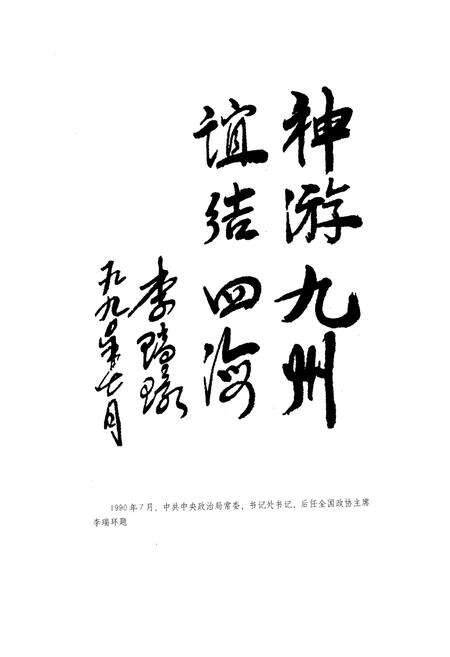 神游九州
谊结四海
李瑞环
一九九〇年七月
1990年7月，中共中央政治局常委，书记处书记，后任全国政协主席
李瑞环题